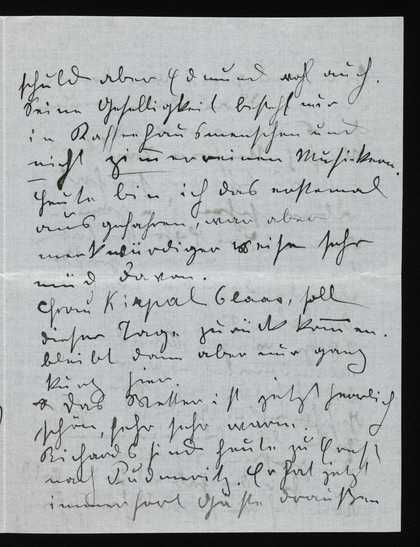 schuld aber Edmund wohl auch.
Seine Geselligkeit besteht nur
in Kaffeehausmenschen und
nicht zimmerreinen Musikern.
Heute bin ich das erstemal
ausgefahren, war aber
merkwürdiger weise sehr
müd davon.
Frau Kirpal soll
dieser Tage zurück kommen.
bleibt dann aber nur ganz
kurz hier.
Das Wetter ist jetzt herrlich
schön, sehr sehr warm.
Richards sind heute zu Ernst
nach Pudmeritz. Er hat jetzt
immerfort Gäste draußen